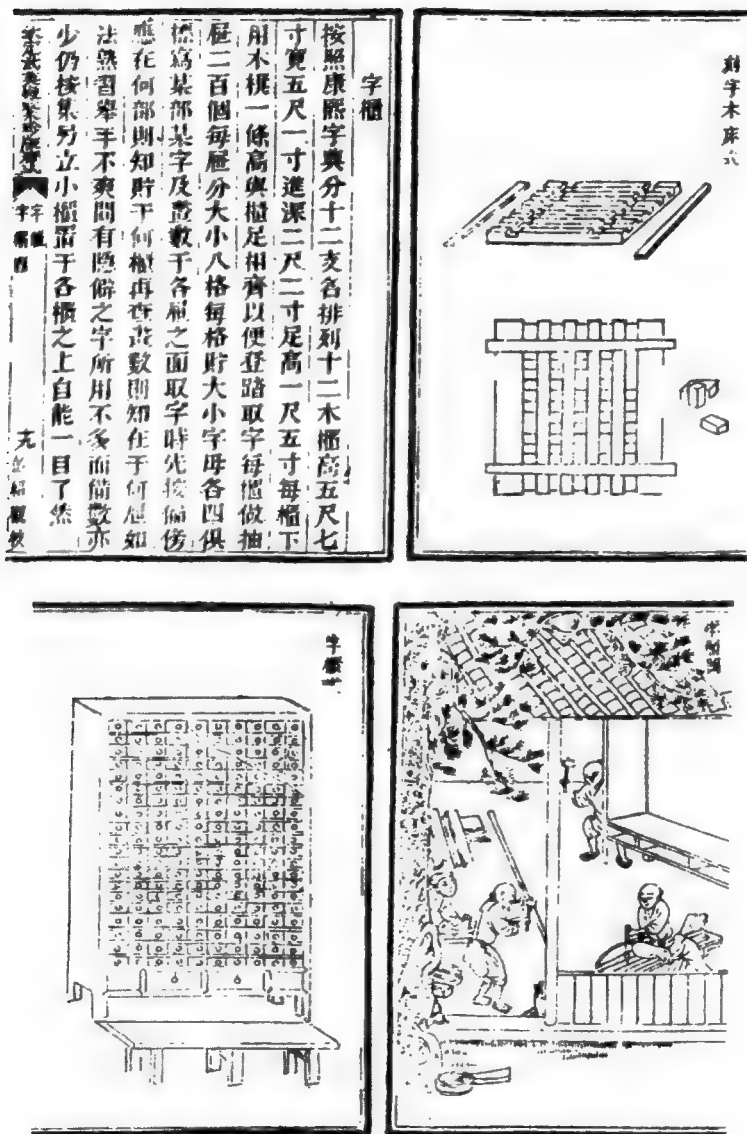 刻字木床式
字櫃
按照康熙字典分十二支名排列十二木櫃高五尺七
寸寬五尺一寸進深二尺二寸足高一尺五寸每櫃下
用木櫈一條高與櫃足相齊以便登踏取字每櫃做抽
屜二百個每屜分大小八格每格貯大小字母各四俱
標寫某部某字及畫數于各屜之面取字時先按偏傍
應在何部則知貯于何櫃再查畫數則知在于何屜如
法熟習舉手不爽間有隱僻之字所用不多而備數亦
少仍按集另立小櫃置于各櫃之上自能一目了然
欽定武英殿聚珍版程式
字櫃
彭紹觀校
字櫃式